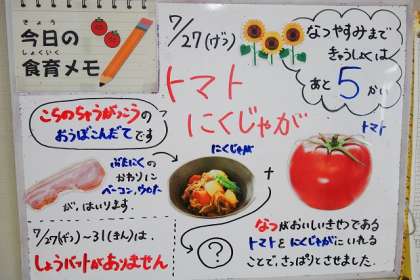 きょう
今日の
しょくいく
食育メモ
7/27(げつ)
なつやすみまで
きゅうしょくは
あと5かい
トマト
にくじゃが
こちのちゅうがっこうの
おうぼこんだてです
ぶたにくの
かわりに
ベーコン、ウインナー
が、はいります。
にくじゃが
+
トマト
7/27(げつ)~31(きん)は、
しょうバットがありません
?
なつがおいしいきせつである
トマトをにくじゃがにいれる
ことで、さっぱりとさせました。